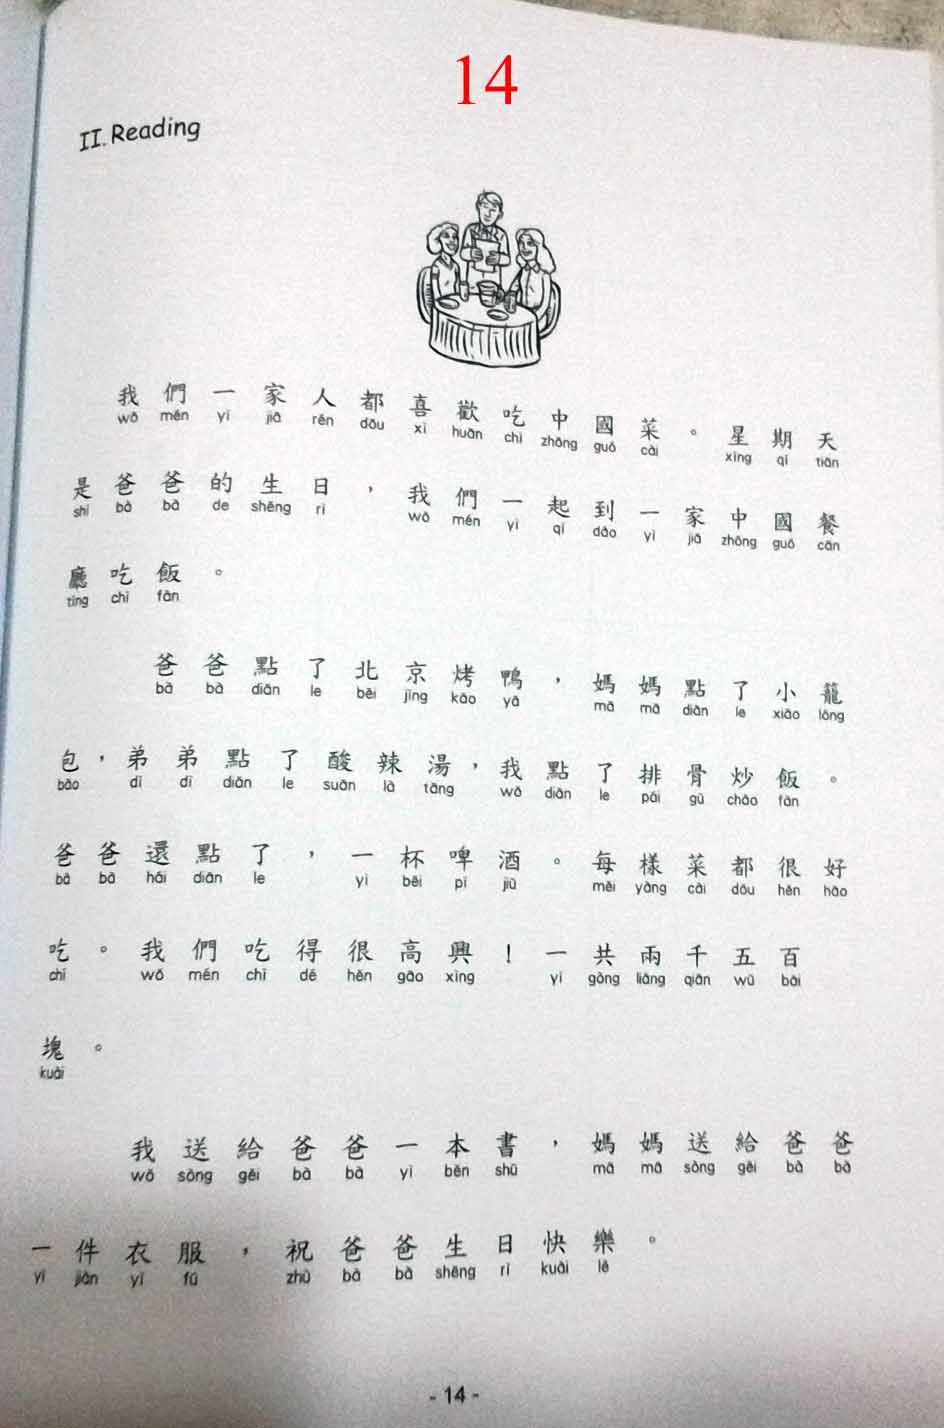 14
II. Reading
我們一家人都喜歡吃中國菜。星期天
wǒ mén yì jiā rén dōu xǐ huān chī zhōng guó cài xīng qí tiān
是爸爸的生日，我們一起到一家中國餐
shì bà bà de shēng rì wǒ mén yì qǐ dào yì jiā zhōng guó cān
廳吃飯。
tīng chī fàn
爸爸點了北京烤鴨，媽媽點了小籠
bà bà diǎn le běi jīng kǎo yā mā mā diǎn le xiǎo lóng
包，弟弟點了酸辣湯，我點了排骨炒飯。
bāo dì dì diǎn le suān là tāng wǒ diǎn le pái gǔ chǎo fàn
爸爸還點了，一杯啤酒。每樣菜都很好
bà bà hái diǎn le yì bēi pí jiǔ měi yàng cài dōu hěn hǎo
吃。我們吃得很高興！一共兩千五百
chī wǒ mén chī dé hěn gāo xìng yí gòng liǎng qiān wǔ bǎi
塊。
kuài
我送給爸爸一本書，媽媽送給爸爸
wǒ sòng gěi bà bà yì běn shū mā mā sòng gěi bà bà
一件衣服，祝爸爸生日快樂。
yí jiàn yī fú zhù bà bà shēng rì kuài lè
- 14 -